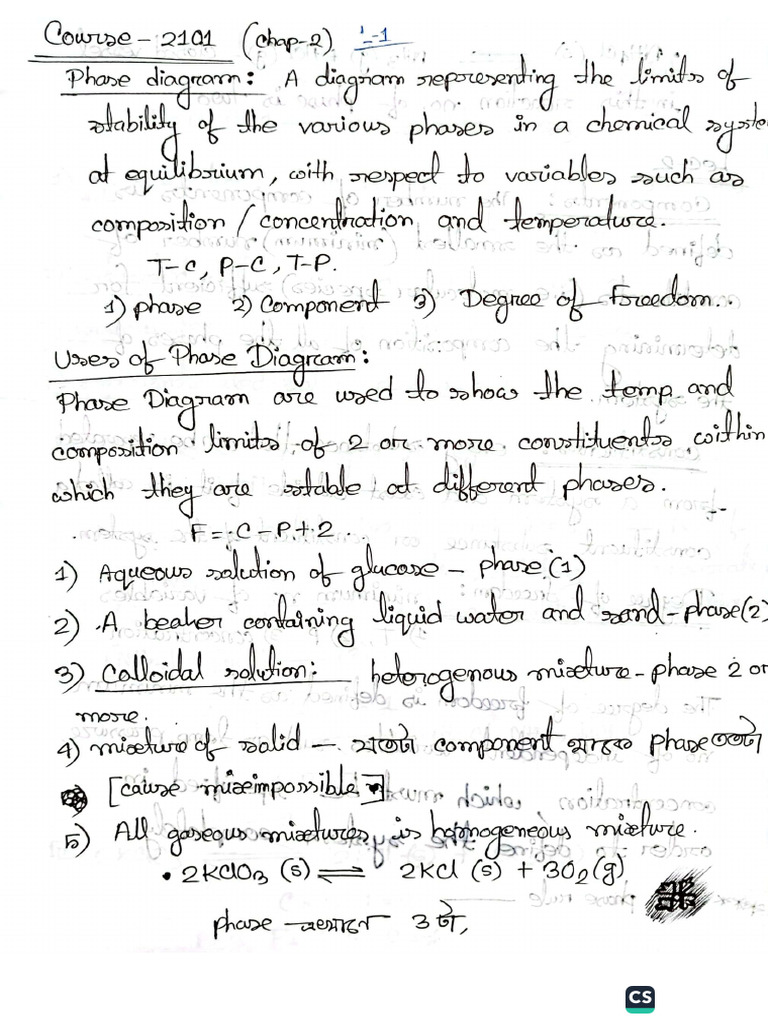 Course - 2101 (Chap-2) L-1
Phase diagram: A diagram representing the limits of
stability of the various phases in a chemical syste
at equilibrium, with respect to variables such as
composition / concentration and temperature.
T-C, P-C, T-P.
1) phase 2) Component 3) Degree of Freedom..
Uses of Phase Diagram:
Phase Diagram are used to show the temp and
composition limits of 2 or more constituents, within
which they are stable at different phases.
F = C - P + 2
1) Aqueous solution of glucose - phase (1)
2) A beaker containing liquid water and sand - phase (2)
3) Colloidal solution: heterogenous mixture - phase 2 or
more.
4) mixture of solid - যতটা component থাকে phase ততটা
[cause mix impossible]
5) All gaseous mixtures, is homogeneous mixture.
• 2KClO3 (s) ⇌ 2KCl (s) + 3O2 (g)
phase এখানে 3 টা,
CS